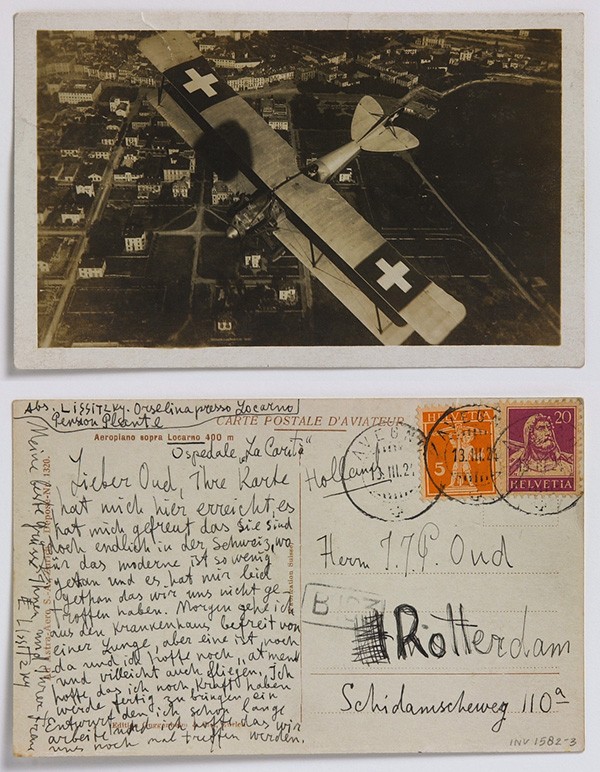 Abs. Lissitzky. Orselina presso Locarno
Pension Planta
CARTE POSTALE D'AVIATEUR
Aeroplano sopra Locarno 400 m
Ospedale „La Carità"
HELVETIA
5
20
HELVETIA
13.III.2
Holland
Lieber Oud, Ihre Karte
hat mich hier erreicht, es
hat mich gefreut das Sie sind
doch endlich in der Schweiz, wo
für das moderne ist so wenig
getan und es hat mir leid
gethan das wir uns nicht ge-
troffen haben. Morgen gehe ich
aus den Krankenhaus befreit von
einer Lunge, aber eine ist noch
da und ich hoffe noch „atmen"
und villeicht auch fliegen. Ich
hoffe, das ich noch Kraft haben
werde fertig zu bringen ein
Entwurf den ich schon lange
arbeite und ich hofft das wir
uns noch mal treffen werden.
Meine beste Grüsse Ihnen und Ihrer Frau
El Lissitzky
Herrn J.J.P. Oud
Rotterdam
Schidamscheweg 110a
INV 1582-3